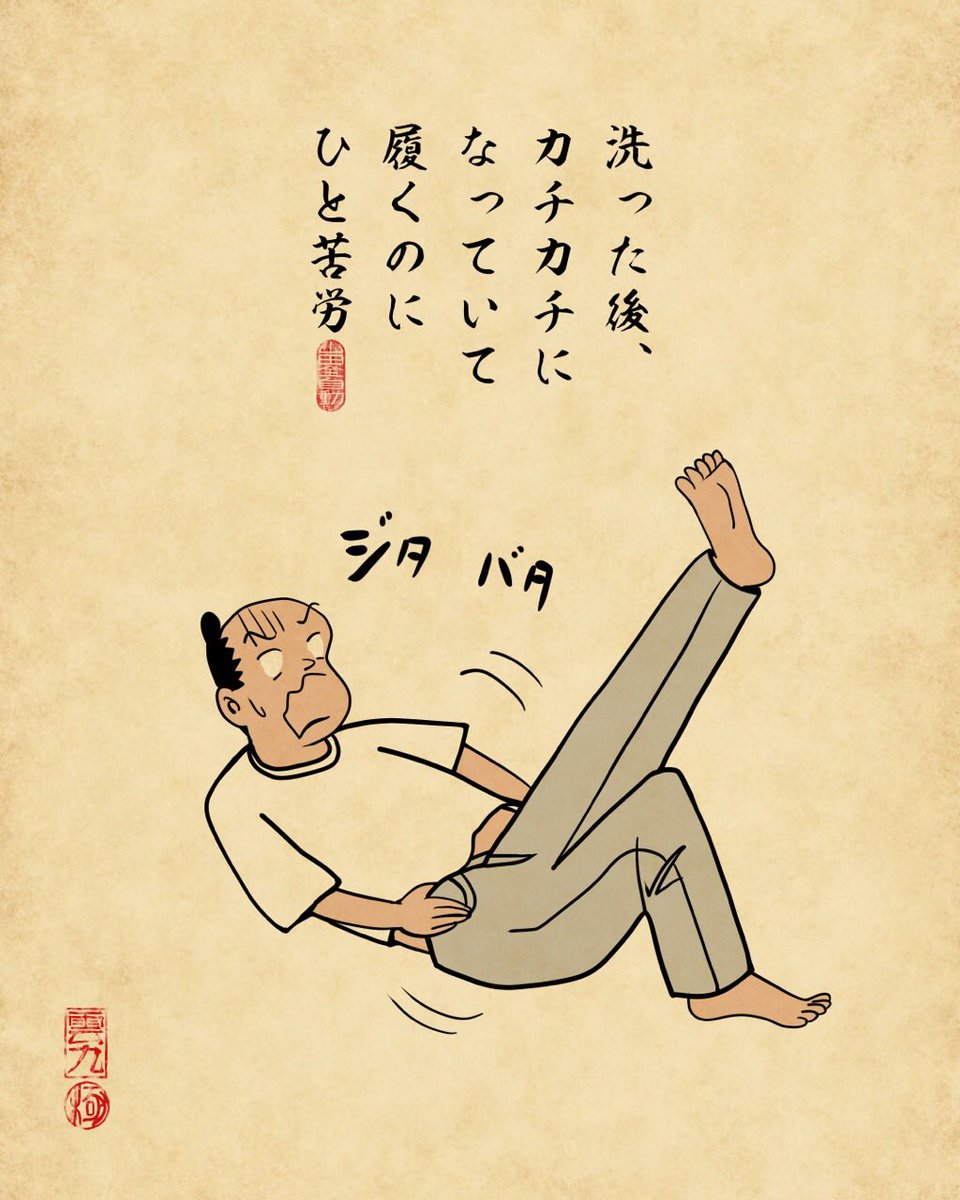 洗った後、
カチカチに
なっていて
履くのに
ひと苦労
ジタ バタ